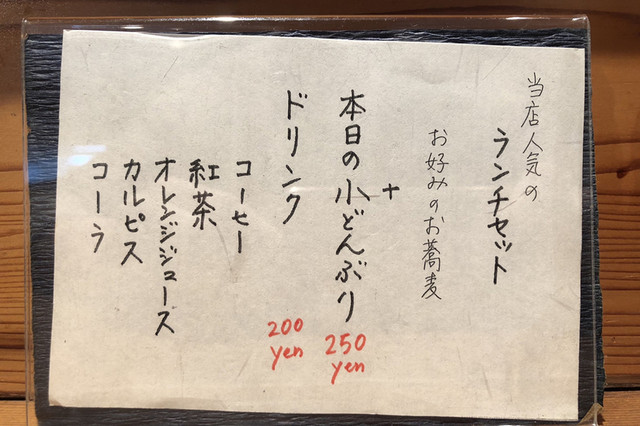 当店人気の
ランチセット
お好みのお蕎麦
+
本日の小どんぶり
250
yen
ドリンク
200
yen
コーヒー
紅茶
オレンジジュース
カルピス
コーラ